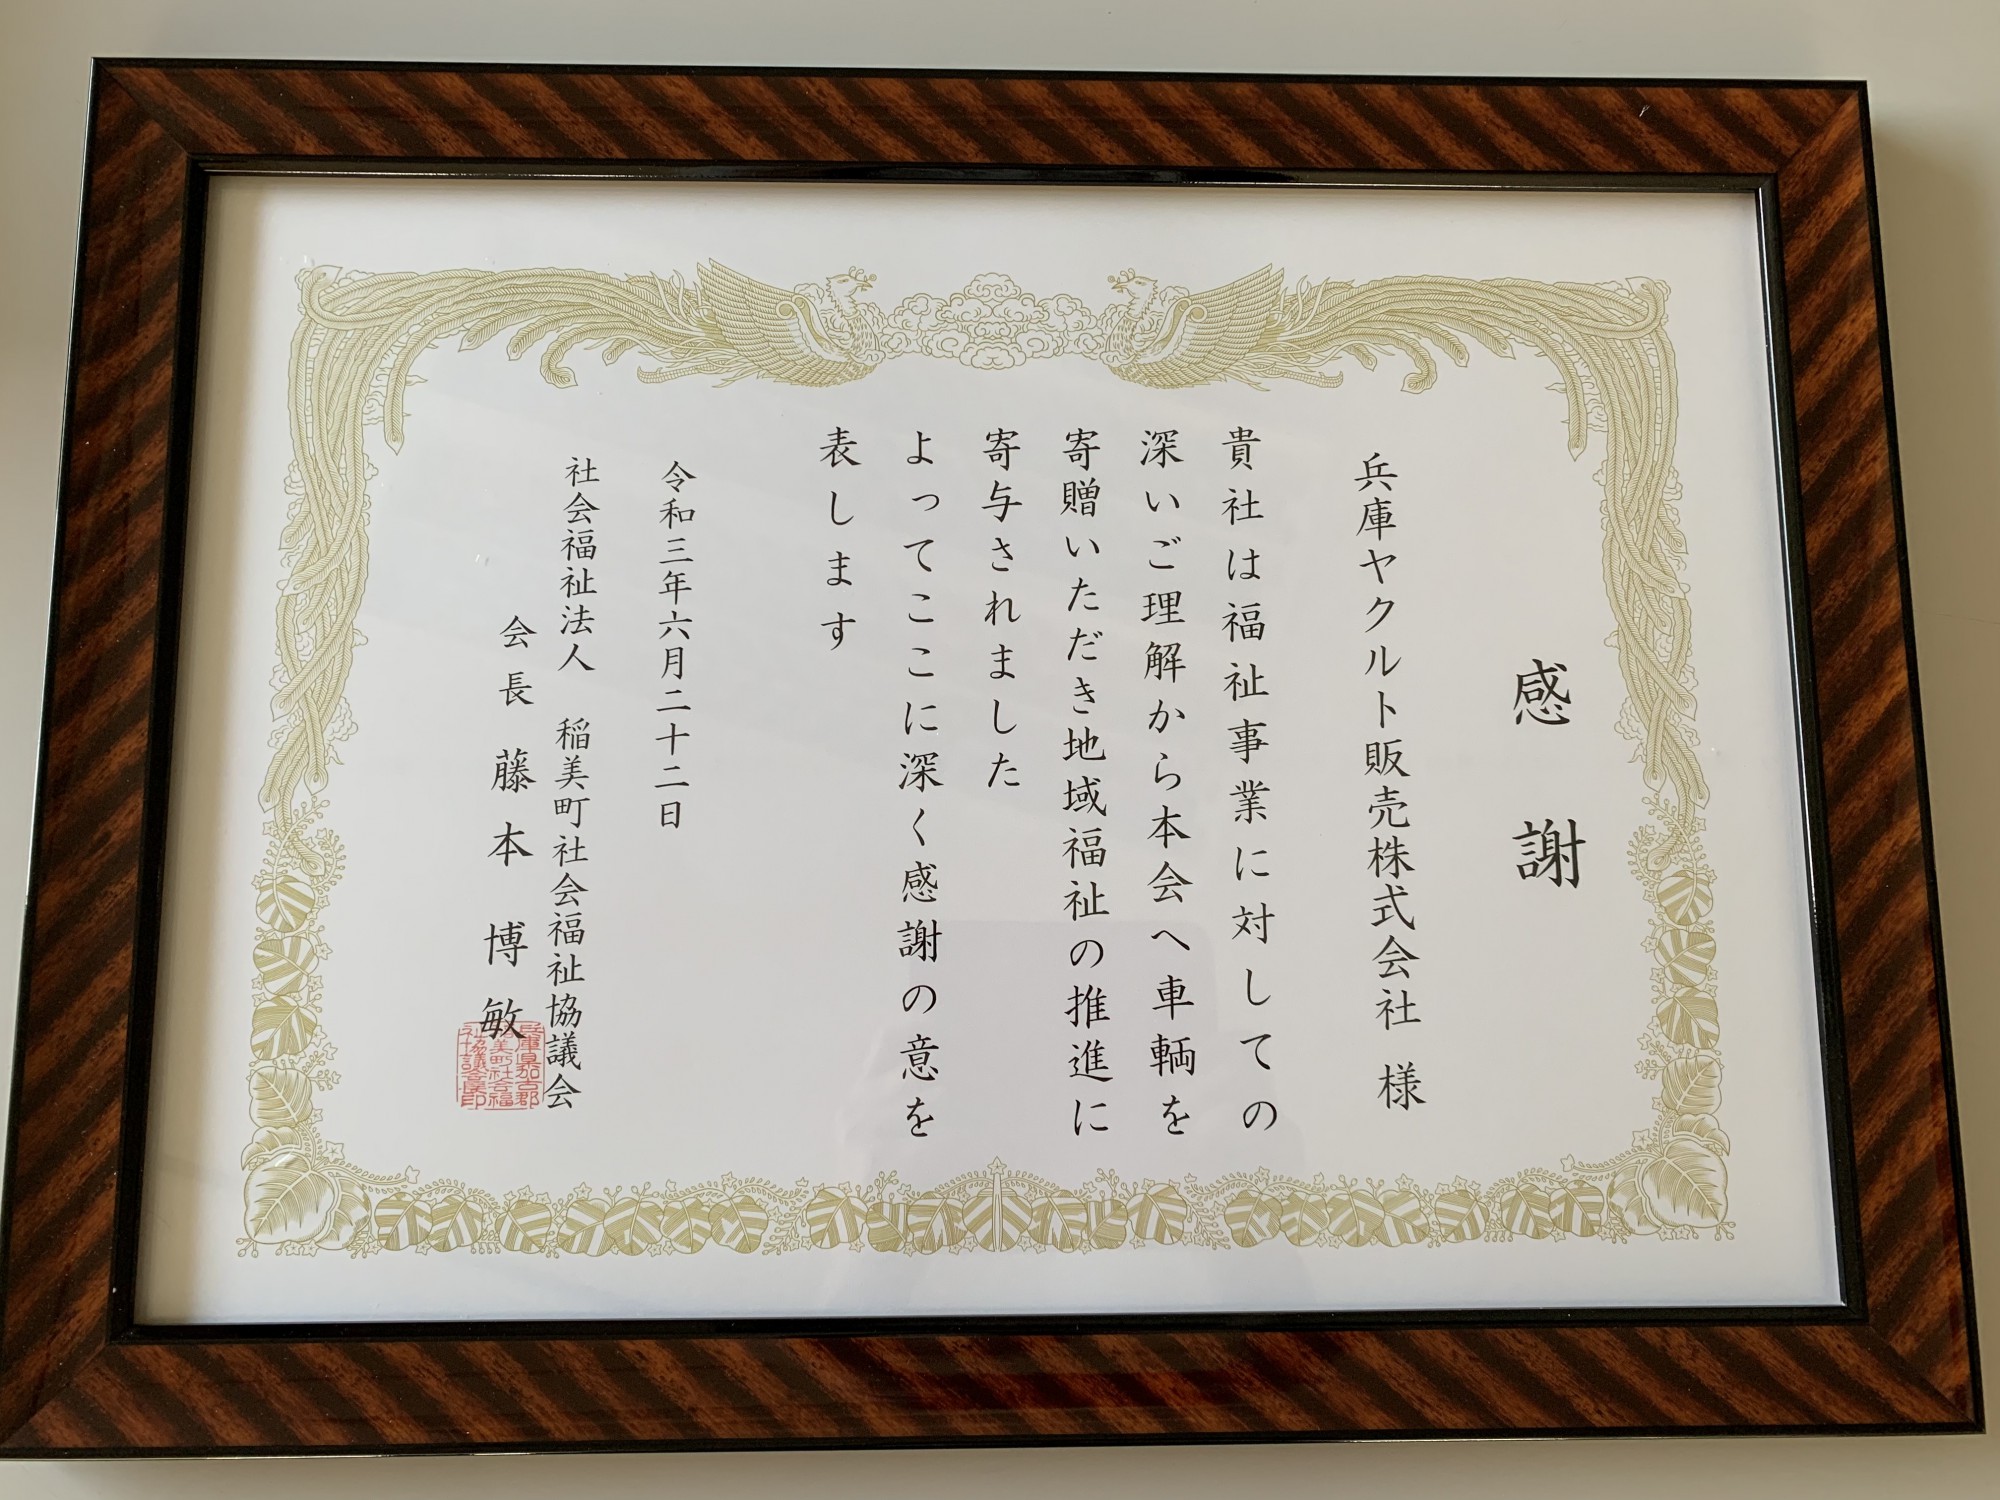 感謝
兵庫ヤクルト販売株式会社 様
貴社は福祉事業に対しての
深いご理解から本会へ車輌を
寄贈いただき地域福祉の推進に
寄与されました
よってここに深く感謝の意を
表します
令和三年六月二十二日
社会福祉法人 稲美町社会福祉協議会
会長 藤本博敏